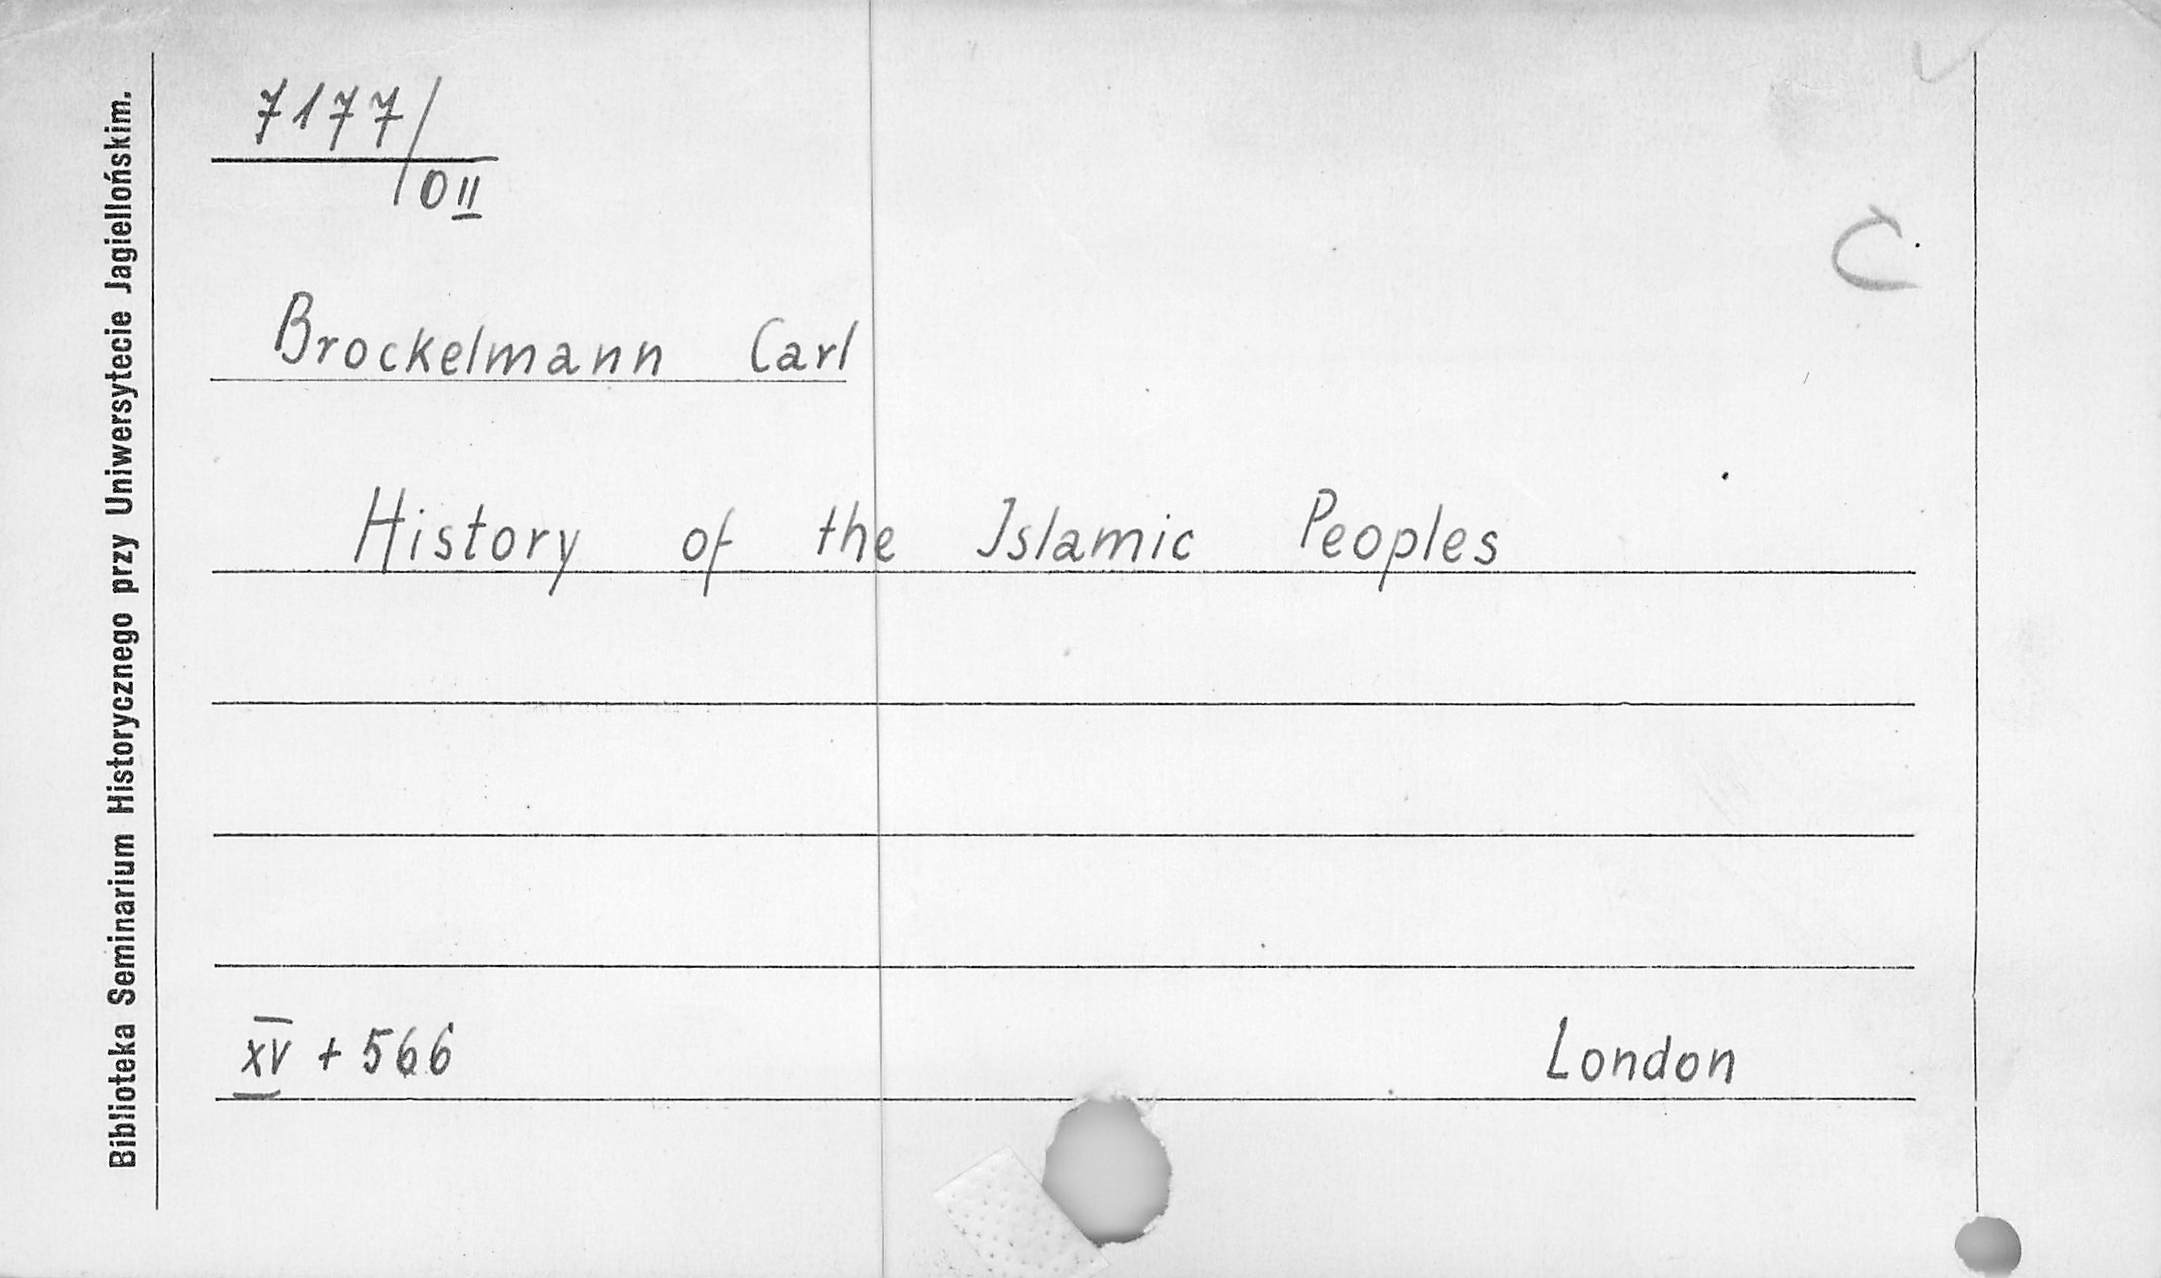 Biblioteka Seminarium Historycznego przy Uniwersytecie Jagiellońskim.
7177/
0 II
C
Brockelmann Carl
History of the Islamic Peoples
XV + 566
London